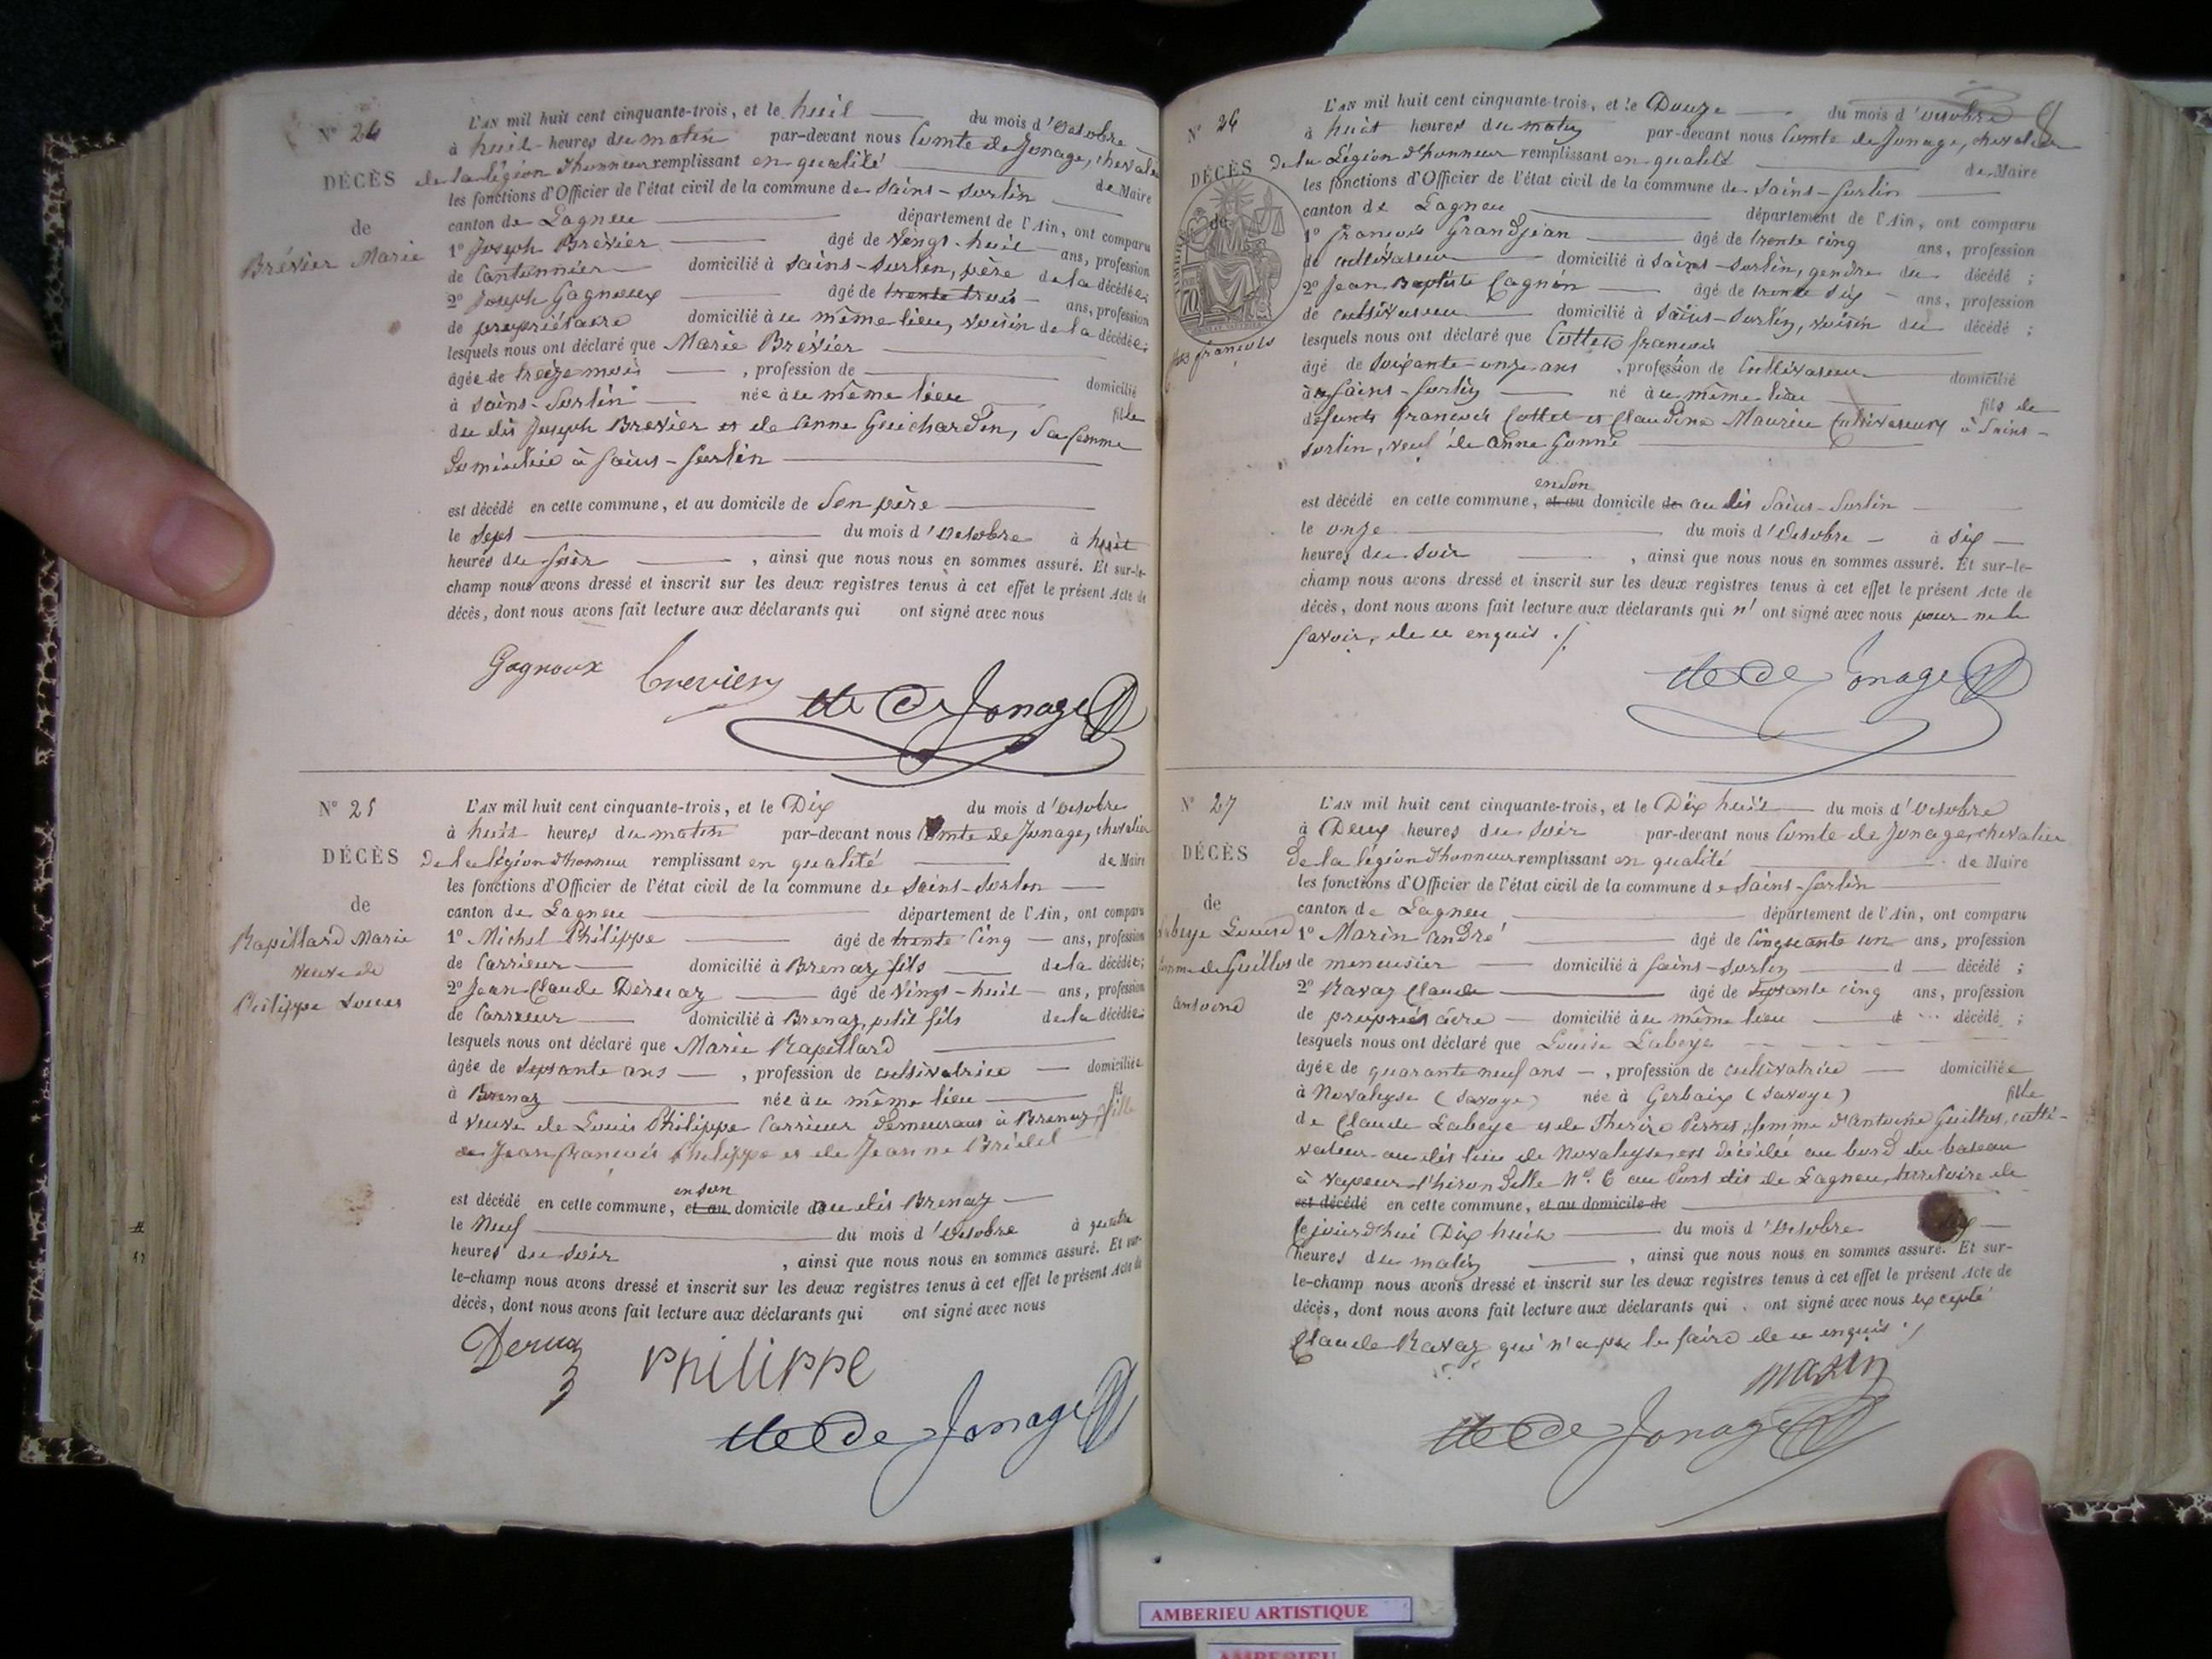 N° 24
DÉCÈS
de
Brévier Marie
L'AN mil huit cent cinquante-trois, et le huit du mois d'Octobre
à huit heures du matin par-devant nous Comte de Jonage, chevalier
de la légion d'honneur remplissant en qualité de Maire
les fonctions d'Officier de l'état civil de la commune de Saint-Sorlin
canton de Lagneu département de l'Ain, ont comparu
1° Joseph Brévier âgé de vingt-huit ans, profession
de Cantonnier domicilié à Saint-Sorlin, père de la décédée;
2° Joseph Gagneux âgé de trente trois ans, profession
de propriétaire domicilié à ce même lieu, voisin de la décédée;
lesquels nous ont déclaré que Marie Brévier
âgée de treize mois , profession de domicilié
à Saint-Sorlin née à ce même lieu fille
du dit Joseph Brévier et de Anne Guichardon, sa femme
domiciliée à Saint-Sorlin
est décédé en cette commune, et au domicile de son père
le sept du mois d'Octobre à huit
heures du soir , ainsi que nous nous en sommes assuré. Et sur-le-
champ nous avons dressé et inscrit sur les deux registres tenus à cet effet le présent Acte de
décès, dont nous avons fait lecture aux déclarants qui ont signé avec nous
Gagnoux brevier de Jonage
N° 25
DÉCÈS
de
Rapillard Marie
veuve de
Philippe Louis
L'AN mil huit cent cinquante-trois, et le Dix du mois d'Octobre
à huit heures du matin par-devant nous Comte de Jonage, chevalier
de la légion d'honneur remplissant en qualité de Maire
les fonctions d'Officier de l'état civil de la commune de Saint-Sorlin
canton de Lagneu département de l'Ain, ont comparu
1° Michel Philippe âgé de trente cinq ans, profession
de Carrieur domicilié à Brenaz, fils de la décédée;
2° Jean Claude Dérnaz âgé de vingt-huit ans, profession
de Carrieur domicilié à Brenaz, petit fils de la décédée;
lesquels nous ont déclaré que Marie Rapillard
âgée de septante ans , profession de cultivatrice domiciliée
à Brenaz née à ce même lieu fil
d veuve de Louis Philippe Carrieur demeurant à Brenaz, fille
de Jean François Philippe et de Jeanne Bridel
en son
est décédé en cette commune, et au domicile au dit Brenaz
le Neuf du mois d'Octobre à quatre
heures du soir , ainsi que nous nous en sommes assuré. Et sur-
le-champ nous avons dressé et inscrit sur les deux registres tenus à cet effet le présent Acte de
décès, dont nous avons fait lecture aux déclarants qui ont signé avec nous
Dernaz PHILIPPE
de Jonage
N° 26
DÉCÈS
de
françois
L'AN mil huit cent cinquante-trois, et le Douze du mois d'Octobre
à huit heures du matin par-devant nous Comte de Jonage, chevalier
de la Légion d'honneur remplissant en qualité de Maire
les fonctions d'Officier de l'état civil de la commune de Saint-Sorlin
canton de Lagneu département de l'Ain, ont comparu
1° françois Grandjean âgé de trente cinq ans, profession
de cultivateur domicilié à Saint-Sorlin, gendre du décédé ;
2° Jean Baptiste Cagnin âgé de trente six ans, profession
de cultivateur domicilié à Saint-Sorlin, voisin du décédé ;
lesquels nous ont déclaré que Cottet françois
âgé de soixante-onze ans , profession de Cultivateur domicilié
à Saint-Sorlin né à ce même lieu fils de
défunts François Cottet et Claudine Maurin Cultivateurs à Saint-
Sorlin, veuf de Anne Gonne
en son
est décédé en cette commune, et au domicile de au dit Saint-Sorlin
le onze du mois d'Octobre à six
heures du soir , ainsi que nous nous en sommes assuré. Et sur-le-
champ nous avons dressé et inscrit sur les deux registres tenus à cet effet le présent Acte de
décès, dont nous avons fait lecture aux déclarants qui n'ont signé avec nous pour ne le
savoir, de ce enquis ./.
de Jonage
N° 27
DÉCÈS
de
Labeye Louise
femme de Guillot
Antoine
L'AN mil huit cent cinquante-trois, et le Dix huit du mois d'Octobre
à Deux heures du soir par-devant nous Comte de Jonage, chevalier
de la légion d'honneur remplissant en qualité de Maire
les fonctions d'Officier de l'état civil de la commune de Saint-Sorlin
canton de Lagneu département de l'Ain, ont comparu
1° Marin André âgé de Cinquante un ans, profession
de menuisier domicilié à Saint-Sorlin d décédé ;
2° Ravaz Claude âgé de septante cinq ans, profession
de propriétaire domicilié à ce même lieu d décédé ;
lesquels nous ont déclaré que Louise Labeye
âgée de quarante neuf ans , profession de cultivatrice domiciliée
à Novalayse (Savoye) née à Gerbaix (Savoye) fille
de Claude Labeye et de Thérèse Perret, femme d'Antoine Guillot, culti-
vateur au dit lieu de Novalayse est décédée au bord du bateau
à vapeur l'hirondelle N° 6 au Port dit de Lagneu, territoire de
est décédé en cette commune, et au domicile de
Cejourd'hui Dix huit du mois d'Octobre à dix
heures du matin , ainsi que nous nous en sommes assuré. Et sur-
le-champ nous avons dressé et inscrit sur les deux registres tenus à cet effet le présent Acte de
décès, dont nous avons fait lecture aux déclarants qui ont signé avec nous excepté
Claude Ravaz qui n'a pu le faire de ce enquis ./
marin
de Jonage
AMBERIEU ARTISTIQUE
AMBERIEU